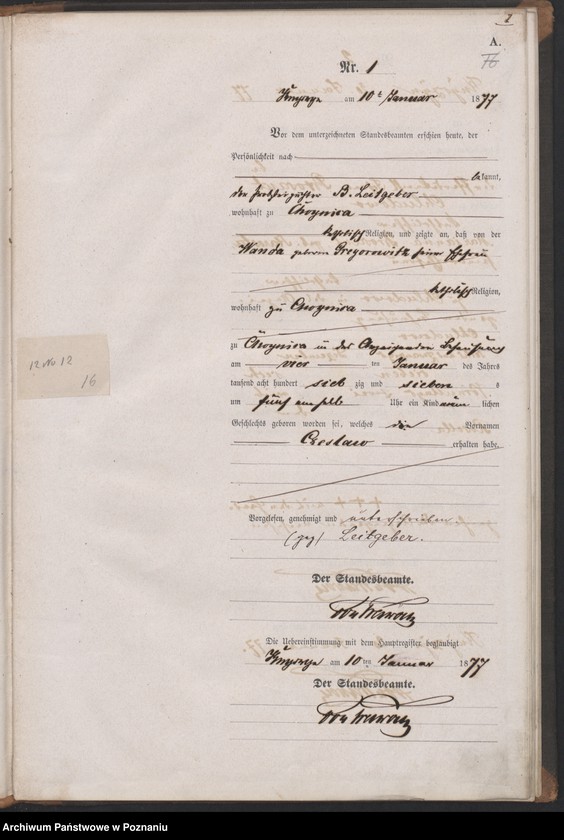 1
A.
Nr. 1
am 10 Januar 1877
Vor dem unterzeichneten Standesbeamten erschien heute, der
Persönlichkeit nach
bekannt,
der B. Leitgeber
wohnhaft zu Choynica
katholisch Religion, und zeigte an, daß von der
Wanda geborene Gregorowitz seiner Ehefrau
katholisch Religion,
wohnhaft zu Choynica
zu Choynica in der Behausung
am vier ten Januar des Jahres
tausend acht hundert sieb zig und sieben
um fünf einhalb Uhr ein Kind männ lichen
Geschlechts geboren worden sei, welches die Vornamen
Czeslaw erhalten habe.
12 No. 12
16
Vorgelesen, genehmigt und unterschrieben
(gez) Leitgeber.
Der Standesbeamte.
Die Uebereinstimmung mit dem Hauptregister beglaubigt
am 10 ten Januar 1877
Der Standesbeamte.
Archiwum Państwowe w Poznaniu